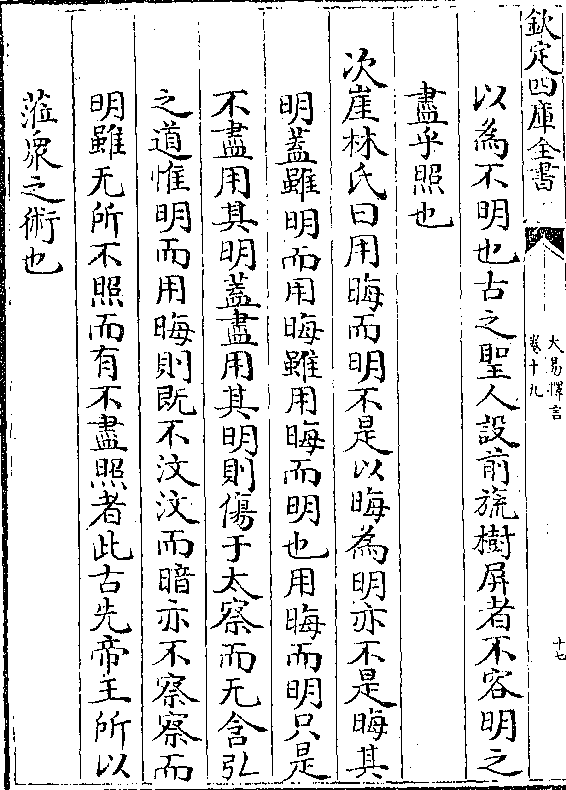 欽定四庫全書
大易擇言
卷十九
十七
以為不明也古之聖人設前旒樹屏者不容明之
盡乎照也
次崖林氏曰用晦而明不是以晦為明亦不是晦其
明葢雖明而用晦雖用晦而明也用晦而明只是
不盡用其明葢盡用其明則傷于太察而无含弘
之道惟明而用晦則既不汶汶而暗亦不察察而
明雖无所不照而有不盡照者此古先帝王所以
蒞衆之術也